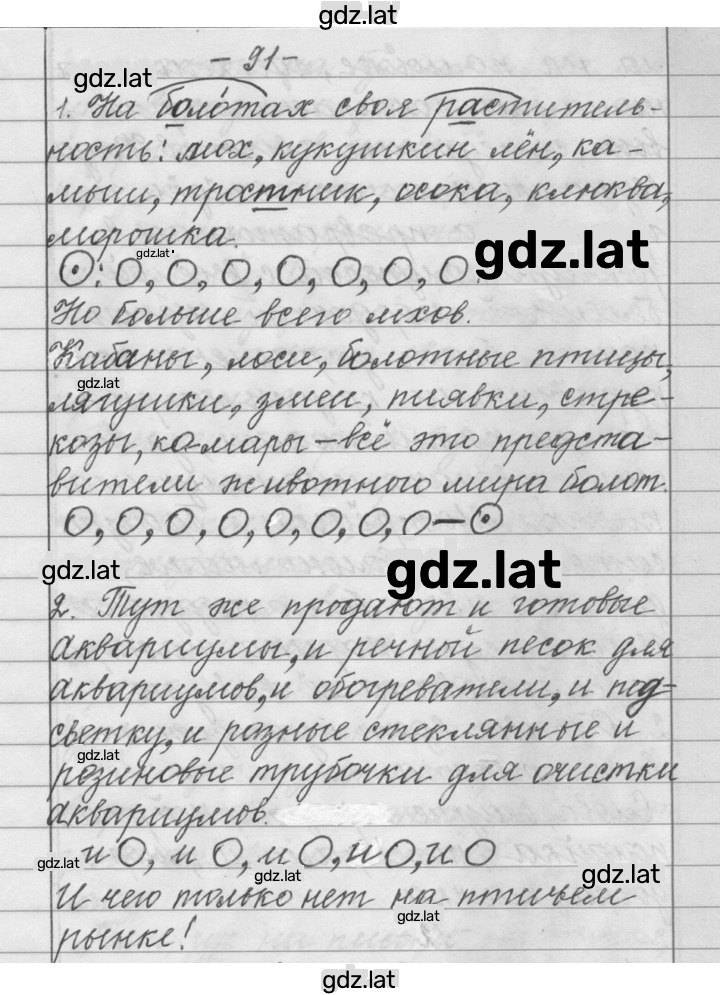 gdz.lat
- 91 -
gdz.lat
1. На болотах своя раститель-
ность: мох, кукушкин лён, ка-
мыш, тростник, осока, клюква,
морошка.
gdz.lat
gdz.lat
⊙: O, O, O, O, O, O, O.
Но больше всего мхов.
Кабаны, лоси, болотные птицы,
gdz.lat
лягушки, змеи, пиявки, стре-
козы, комары – всё это предста-
вители животного мира болот.
O, O, O, O, O, O, O, O – ⊙
gdz.lat
gdz.lat
2. Тут же продают и готовые
аквариумы, и речной песок для
аквариумов, и обогреватели, и под-
светку, и разные стеклянные и
gdz.lat
резиновые трубочки для очистки
аквариумов.
gdz.lat
и O, и O, и O, и O, и O
gdz.lat
gdz.lat
И чего только нет на птичьем
gdz.lat
рынке!
gdz.lat